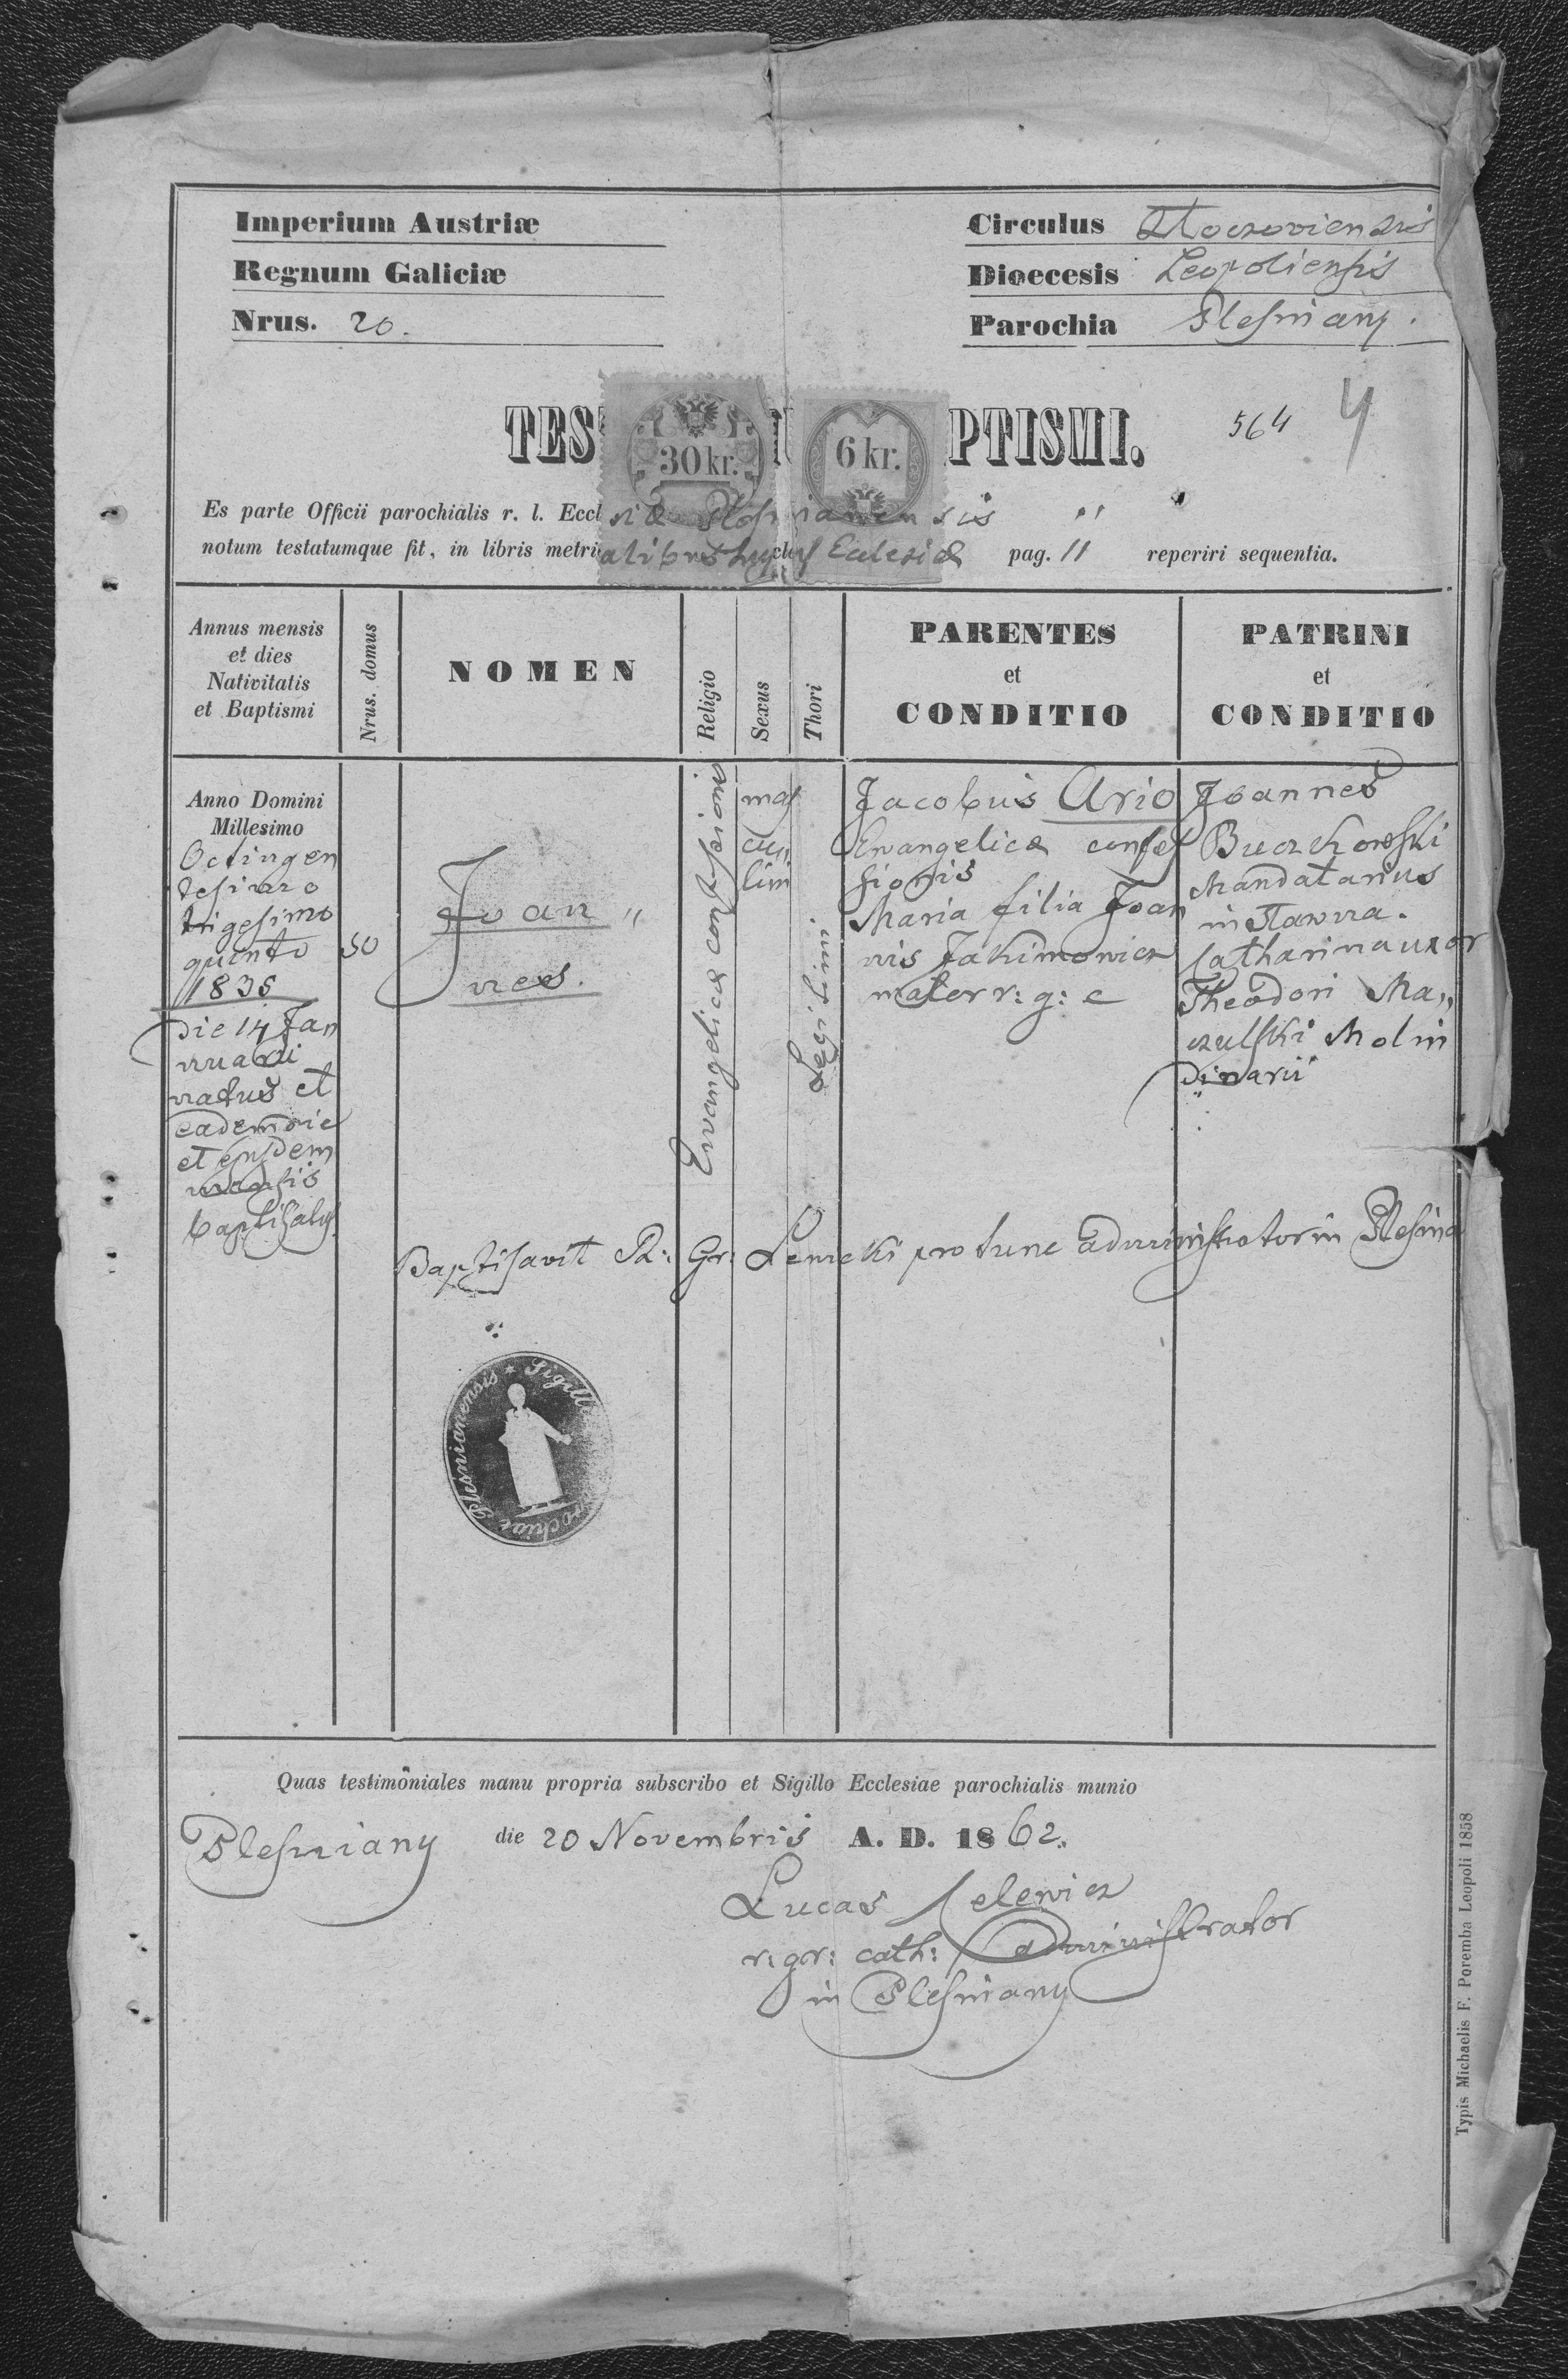 Imperium Austriæ
Circulus Złoczoviensis
Regnum Galiciæ
Dioecesis Leopoliensis
Nrus. 20.
Parochia Plesniany.
TES PTISMI.
30 kr.
6 kr.
564
4
Es parte Officii parochialis r. l. Eccl siæ Plesnianensis "
notum testatumque fit, in libris metri calibus hujus Eclesiæ pag. 11 reperiri sequentia.
Annus mensis
et dies
Nativitatis
et Baptismi
Nrus. domus
NOMEN
Religio
Sexus
Thori
PARENTES
et
CONDITIO
PATRINI
et
CONDITIO
Anno Domini
Millesimo
Octingen
tesimo
trigesimo
quinto
1835
Die 14 Jan
nuarii
natus et
eademdie
et ejusdem
mensis
baptisatus
50
Joan "
nes.
Ewangelicæ confessionis
mas
cu"
lini
Legitimi.
Jacobus Ario
Ewangelicæ confes
sionis
Maria filia Joan
nis Jakimowicz
mater r: g: c
Joannes
Buczkowski
Mandatarius
in Ławra.
Catharina uxor
Theodori Ma"
czulski Molin
dinarii
Baptisavit R: Gr: Lewicki pro tunc administrator in Plesnia
Sigill Parochiae Plesnianensis *
Quas testimoniales manu propria subscribo et Sigillo Ecclesiae parochialis munio
Plesniany die 20 Novembris A. D. 1862.
Lucas Celewicz
r: gr: cath: administrator
in Plesniany
Typis Michaelis F. Poremba Leopoli 1858